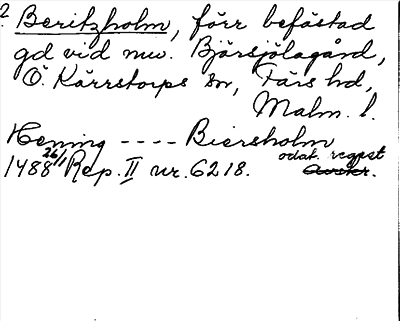 ? Beritzholm, förr befästad
gd vid nuv. Bjärsjölagård,
Ö. Kärrstorps sn, Färs hd,
Malm. l.
Hening ---- Biersholm
1488 26/1 Rep. II nr. 6218. odat. regest